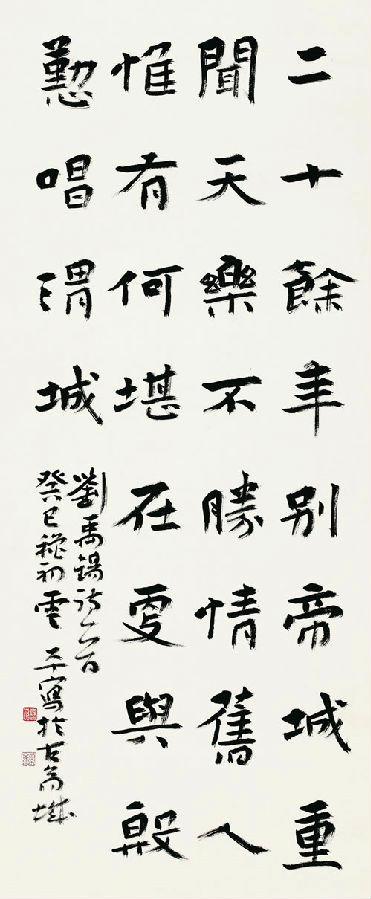 二十餘年別帝城重
聞天樂不勝情舊人
惟有何堪在更與殷
懃唱渭城
劉禹錫詩一首
癸巳穐初雲平寫於古